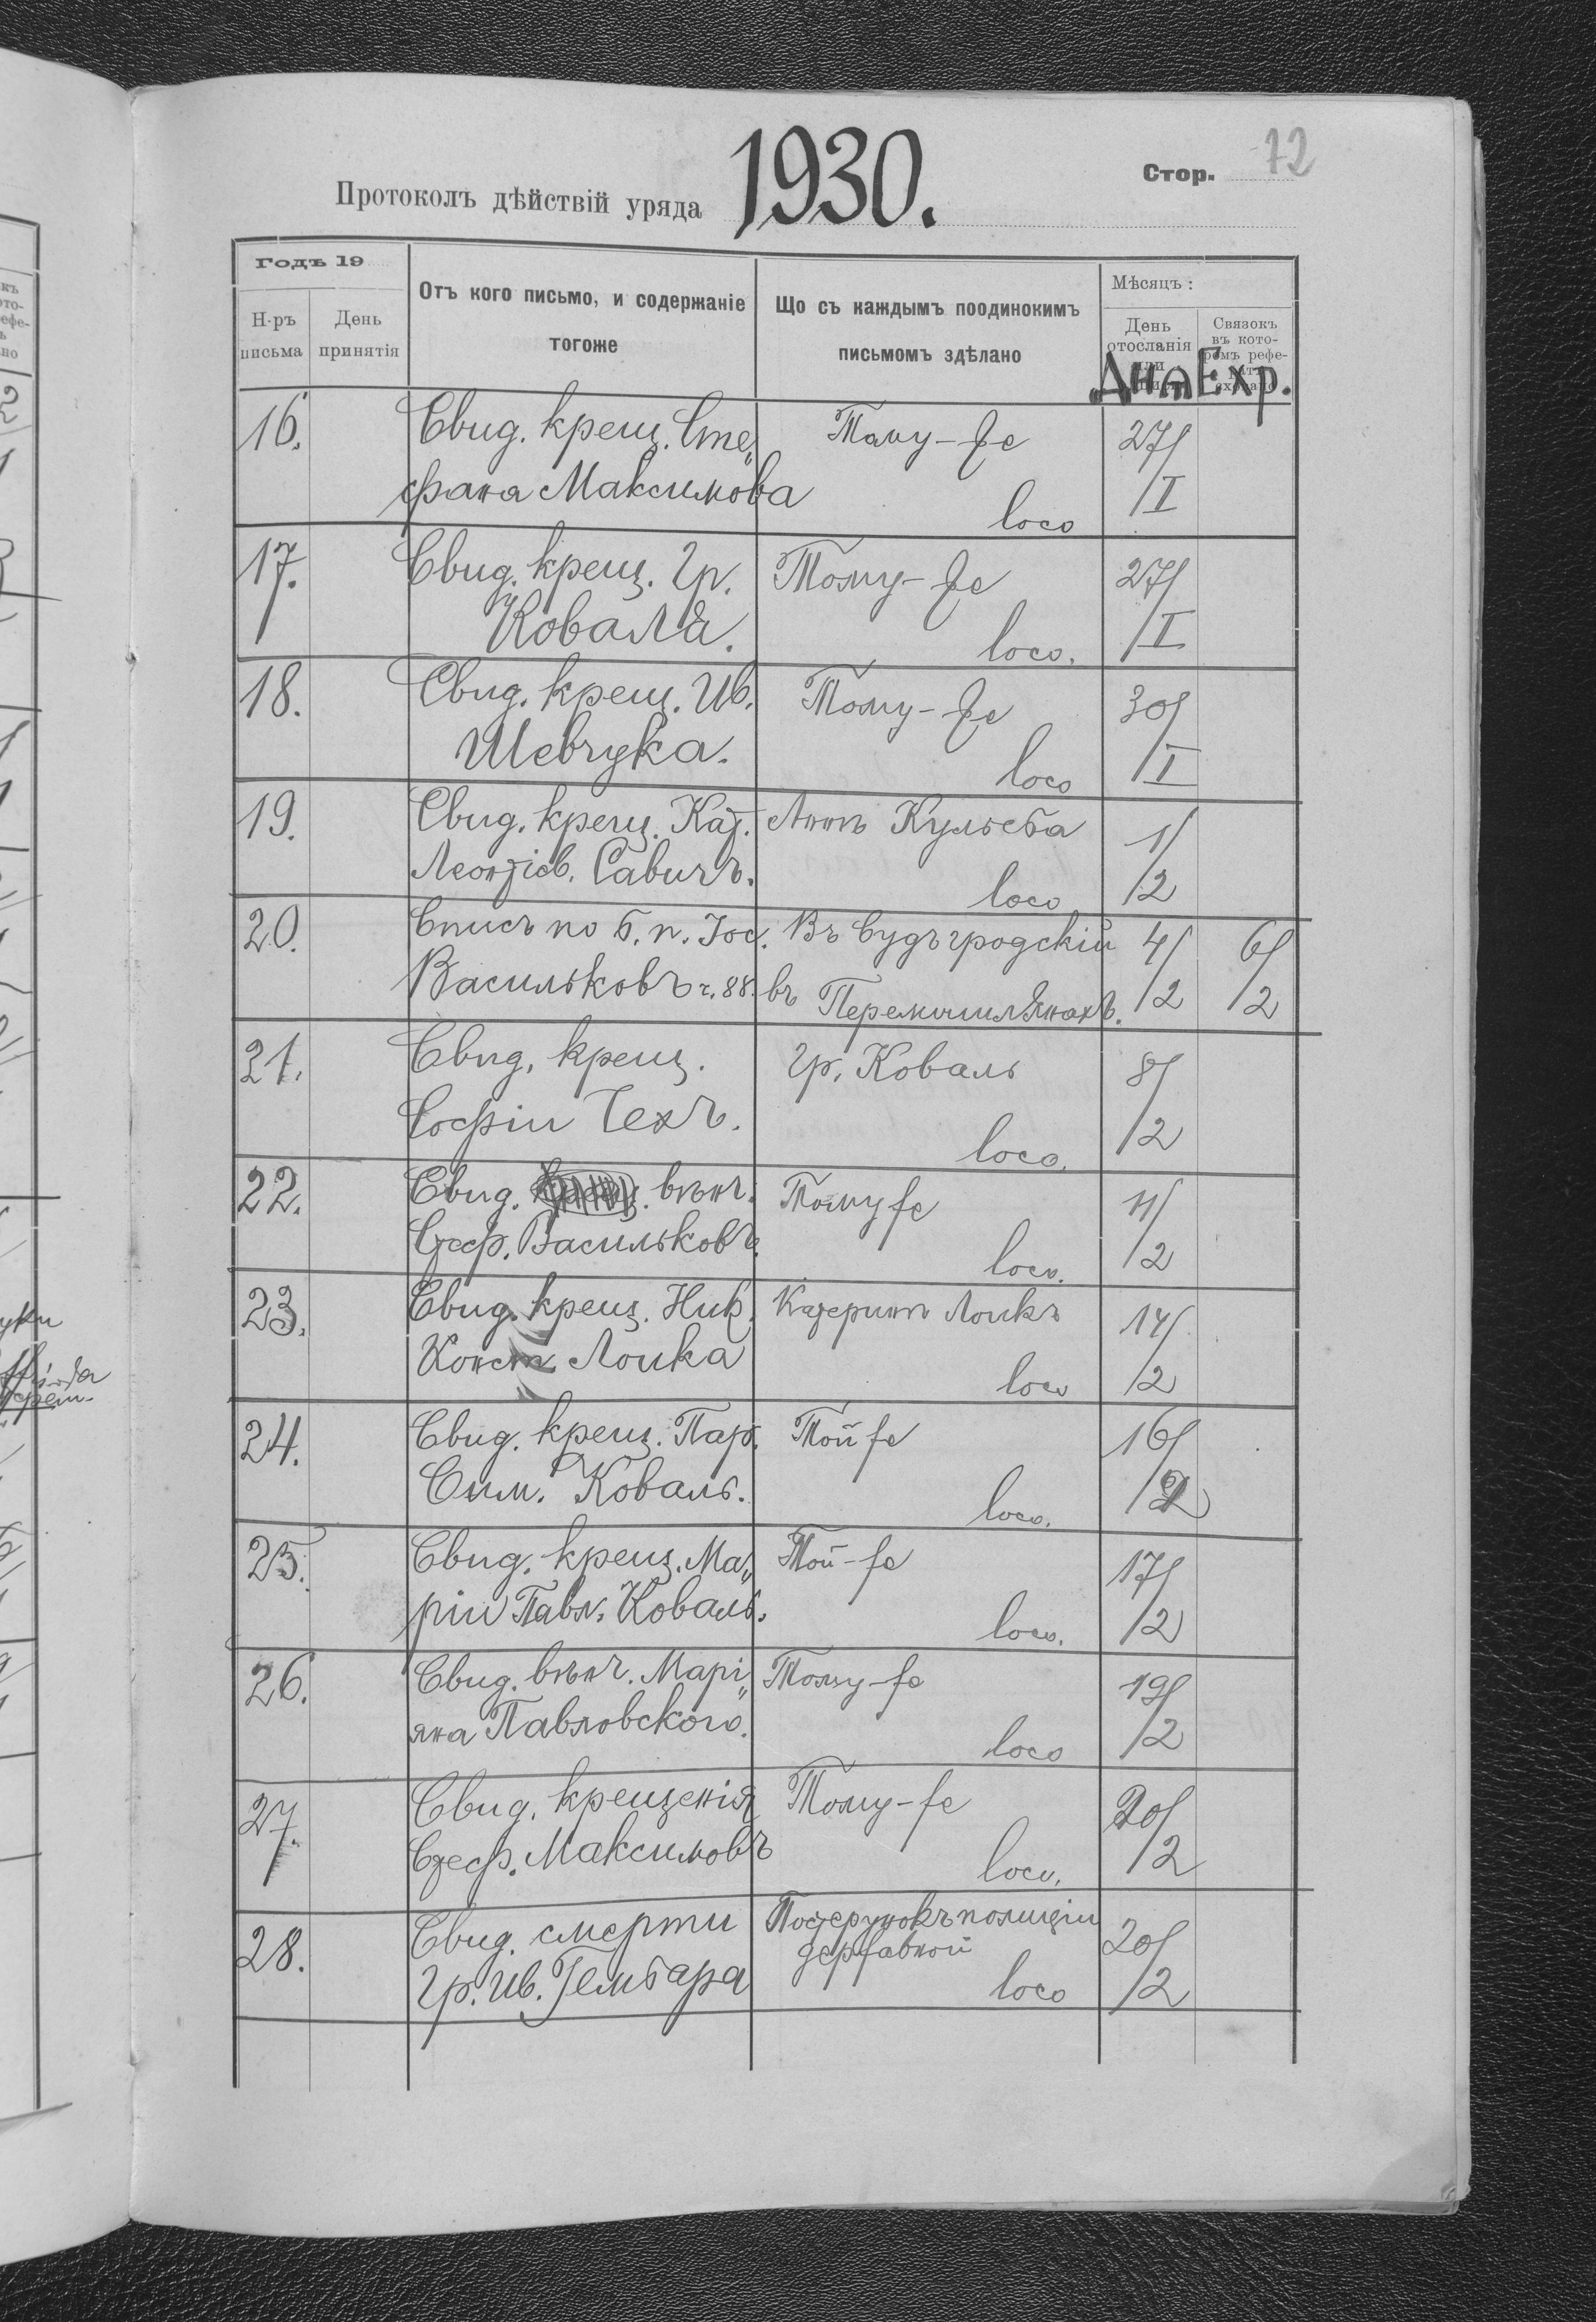 1930.
Стор. 72
Протоколъ дѣйствій уряда
Годъ 19
Н-ръ письма
День принятія
Отъ кого письмо, и содержаніе
тогоже
Що съ каждымъ поодинокимъ
письмомъ здѣлано
Мѣсяцъ:
День
отосланія
Связокъ
въ кото-
ромъ рефе-
Дня Exp.
16. Свид. крещ. Сте„ Тому-же 27/
фана Максимова loco /I
17. Свид. крещ. Гр. Тому-же 27/
Коваля. loco. /I
18. Свид. крещ. Ив. Тому-же 30/
Шевчука. loco /I
19. Свид. крещ. Кат. Аннѣ Кульчба 1/
Леонтіев. Савичъ. loco /2
20. Списъ по б. п. Іос. Въ Судъ гродскій 4/ 6/
Васильковъ ч. 88. въ Перемишлянахъ. /2 /2
21. Свид. крещ. Гр. Коваль 8/
Софіи Чехъ. loco. /2
22. Свид. вѣнч. Тому же 11/
Стеф. Васильковъ. loco. /2
23. Свид. крещ. Ник. Катеринѣ Лоикъ 14/
Конст. Лоика loco /2
24. Свид. крещ. Пар. Той же 16/
Сим. Коваль. loco. /2
25. Свид. крещ. Ма„ Той-же 17/
ріи Павл. Коваль. loco. /2
26. Свид. вѣнч. Марі„ Тому-же 19/
яна Павловского. loco /2
27. Свид. крещенія Тому-же 20/
Стеф. Максимовъ loco. /2
28. Свид. смерти Постерунокъ полиціи 20/
державной
Гр. Ив. Гембара loco /2